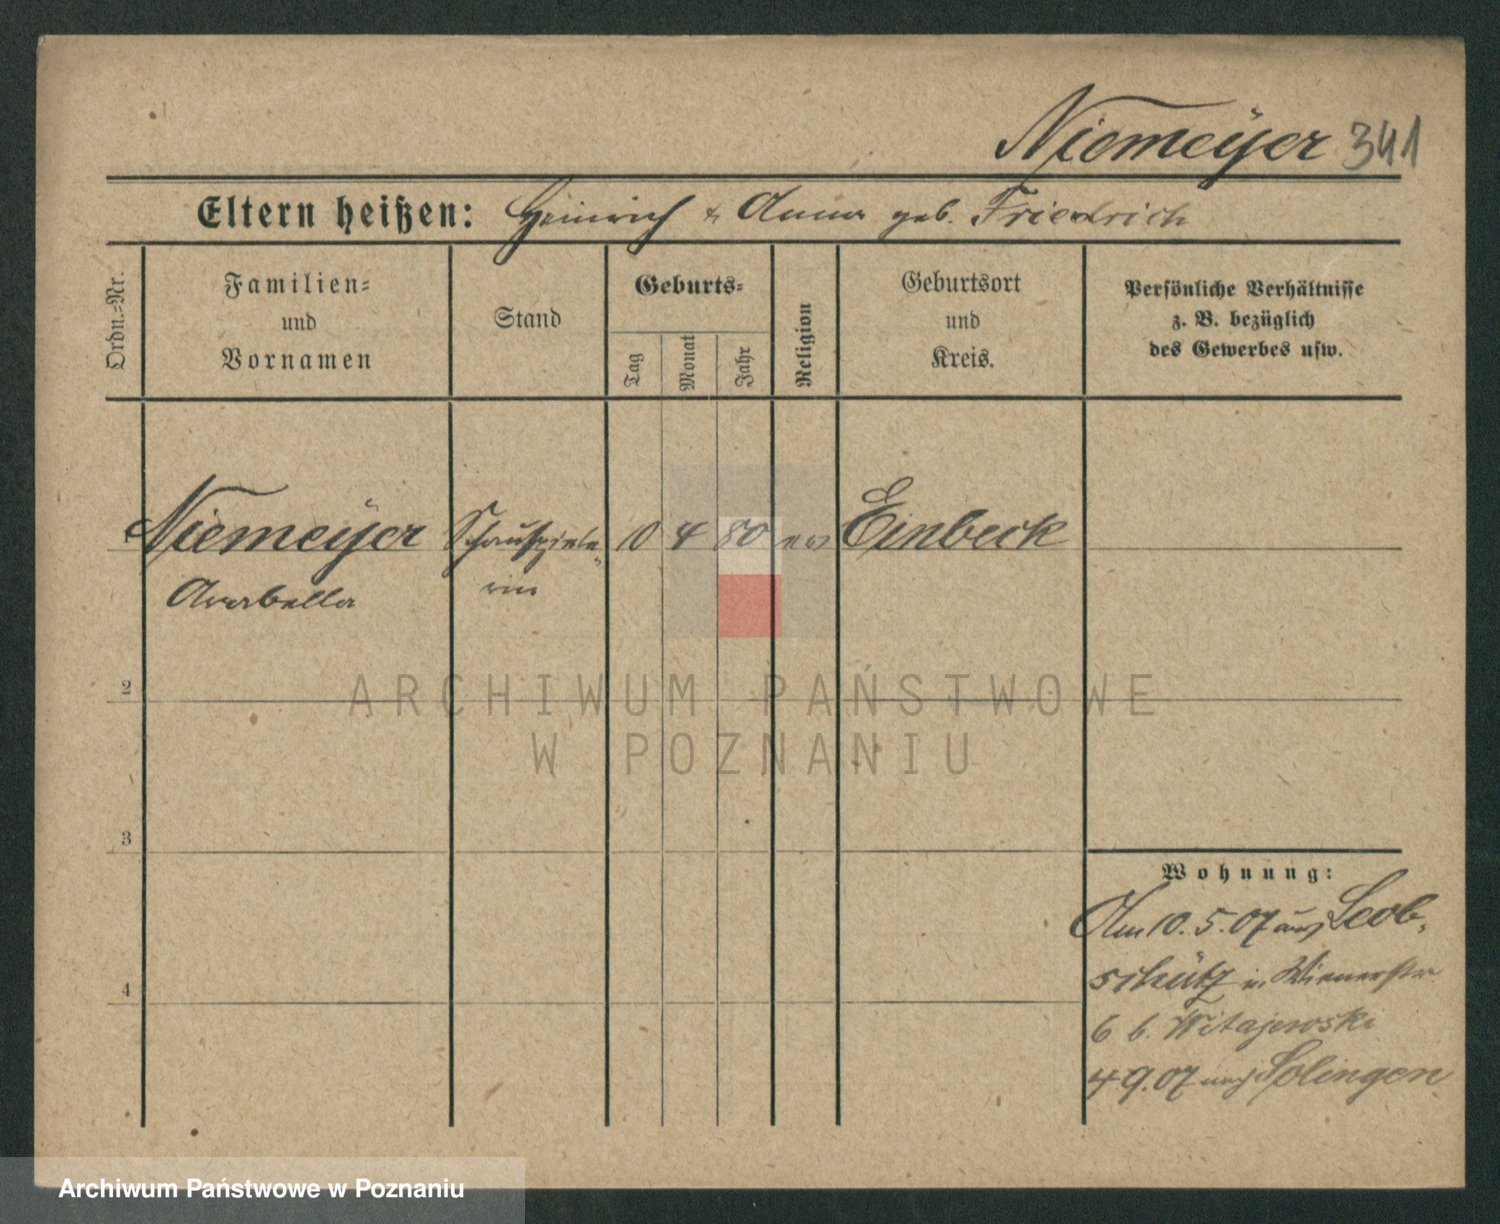 Niemeÿer 341
Eltern heißen: Heinrich & Anna geb. Friedrich
Ordn.-Nr.
Familien-
und
Vornamen
Stand
Geburts-
Tag
Monat
Jahr
Religion
Geburtsort
und
Kreis.
Persönliche Verhältnisse
z. B. bezüglich
des Gewerbes usw.
1 Niemeÿer Schauspiele- 10 4 80 ev Einbeck
Arabella rin
2
3
4
Wohnung:
Am 10.5.07 aus Leob-
schütz n. Wienerstr
6 b. Witajewski
4 9.07 nach Solingen
ARCHIWUM PAŃSTWOWE
W POZNANIU
Archiwum Państwowe w Poznaniu